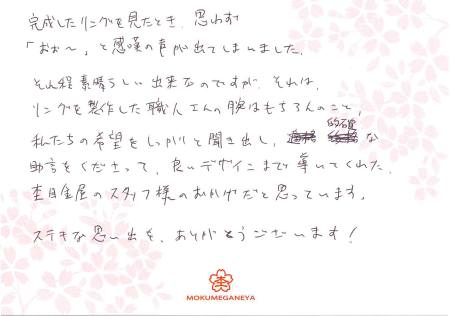 完成したリングを見たとき、思わず
「おぉ〜」と感嘆の声が出てしまいました。
それ程素晴らしい出来なのですが、それは、
リングを製作した職人さんの腕はもちろんのこと、
私たちの希望をしっかりと聞き出し、的確な
助言をくださって、良いデザインまで導いてくれた、
杢目金屋のスタッフ様のおかげだと思っています。
ステキな思い出を、ありがとうございます！
MOKUMEGANEYA